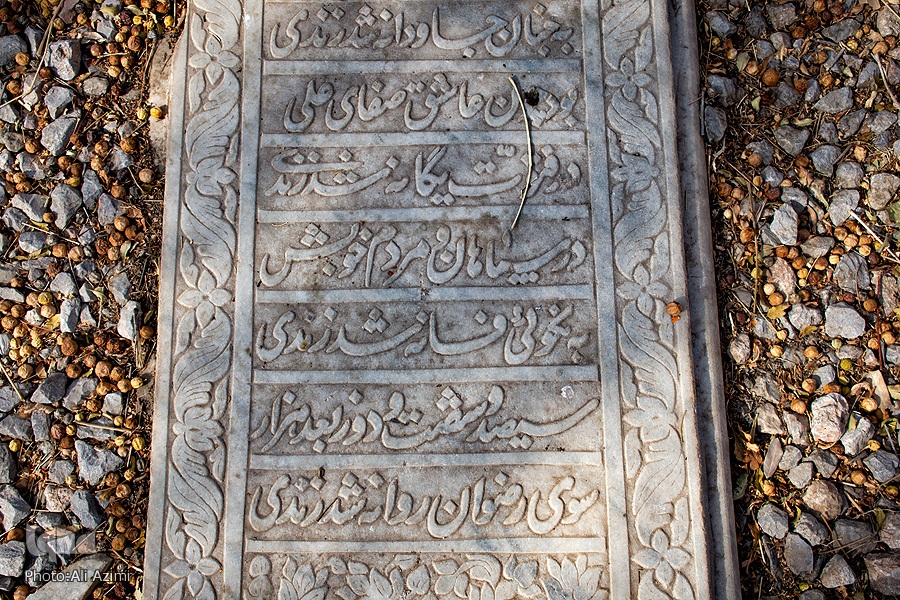 به جنان جاودانه شد زندی
بود چون عاشق صفای علی
در فن یگانه شد زندی
در سپاهان و مردم خوبش
به نکوئی فسانه شد زندی
سیصد و شصت و دو ز بعد هزار
سوی رضوان روانه شد زندی
Photo:Ali Azimi